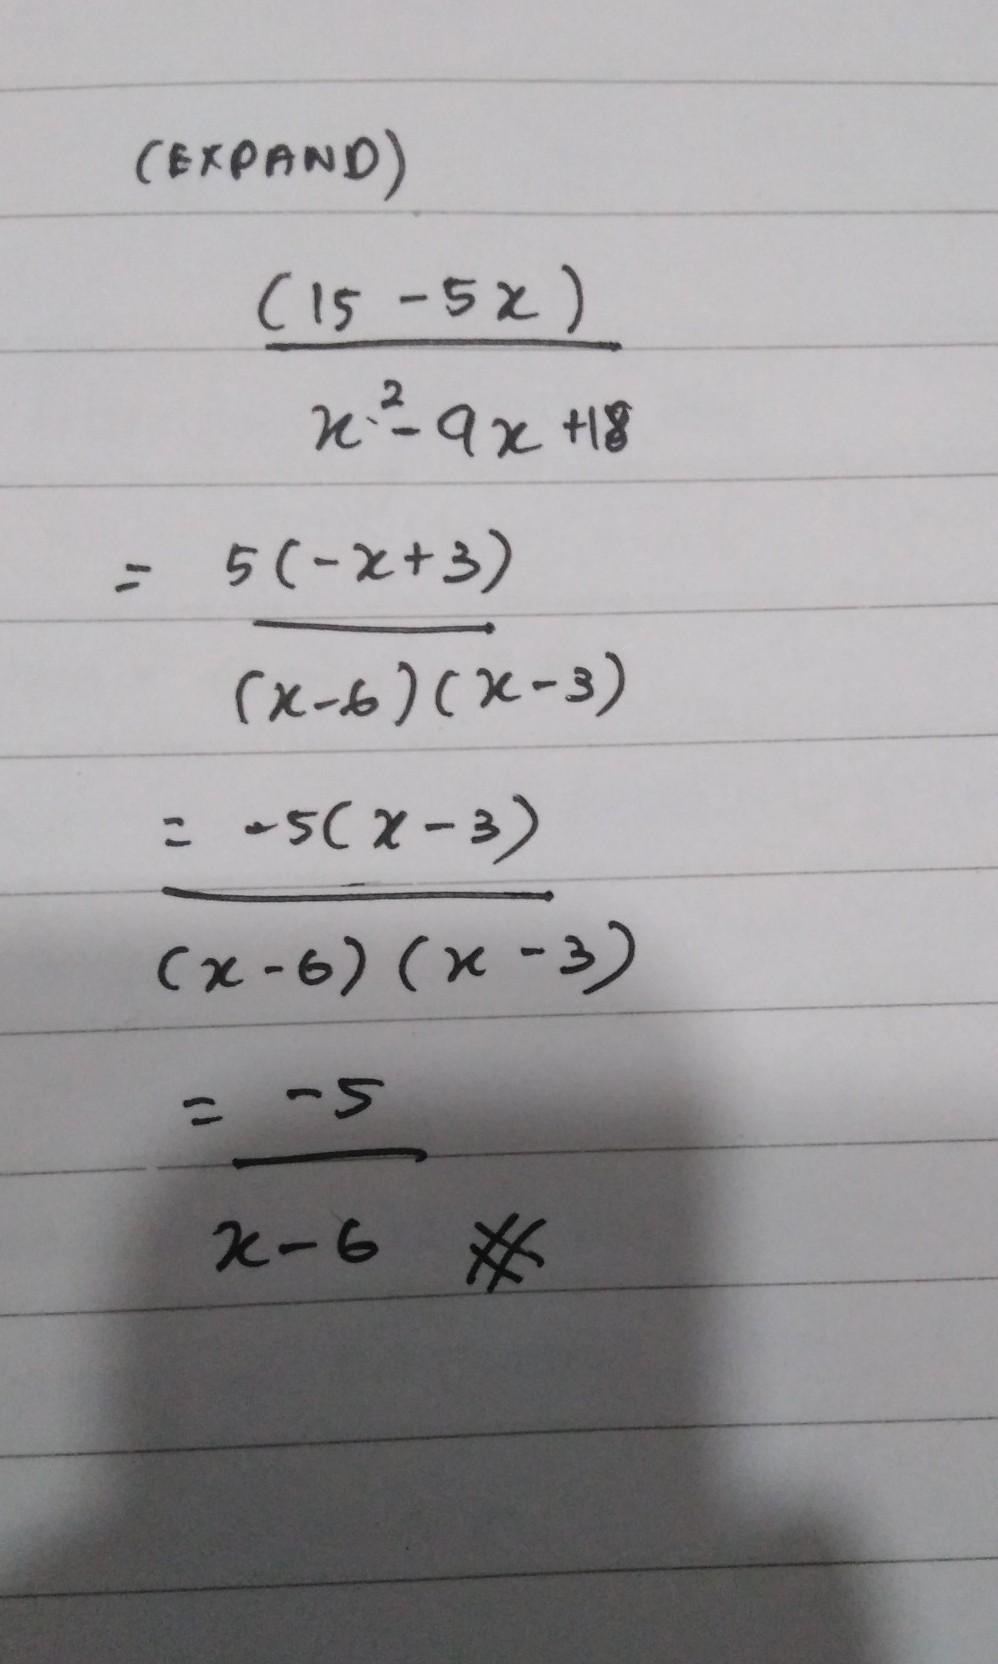 (EXPAND)
(15 - 5x)
x² - 9x + 18
= 5(-x+3)
(x-6)(x-3)
= -5(x-3)
(x-6)(x-3)
= -5
x-6